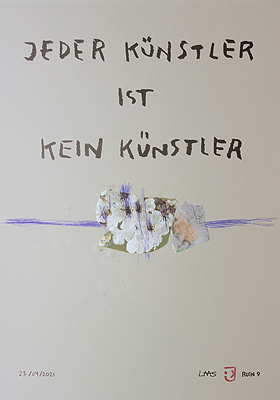 JEDER KÜNSTLER
IST
KEIN KÜNSTLER
25/04/2021 LMS RUIN 9